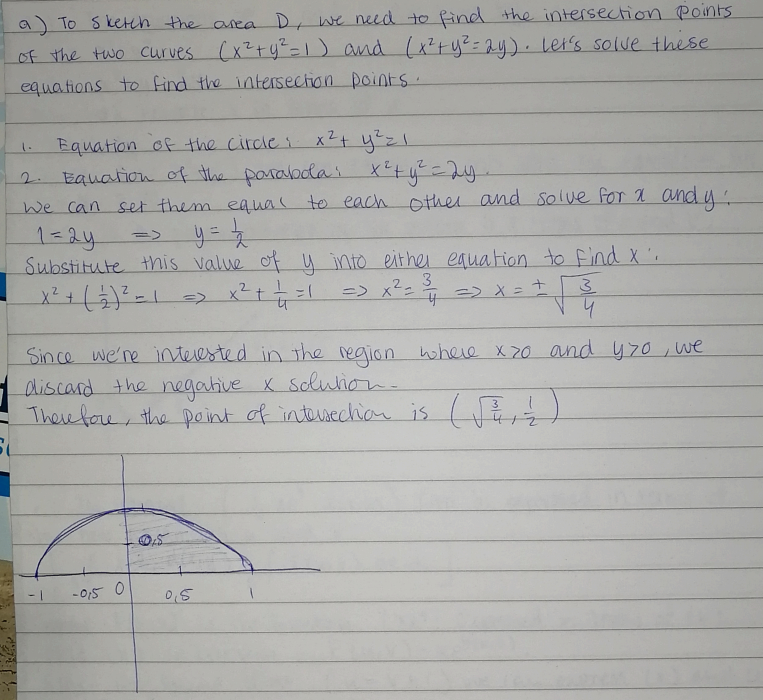 a) To sketch the area D, we need to find the intersection points
of the two curves (x²+y²=1) and (x²+y²=2y). Let's solve these
equations to find the intersection points.
1. Equation of the circle: x²+y²=1
2. Equation of the parabola: x²+y²=2y.
We can set them equal to each other and solve for x and y:
1=2y => y=1/2
Substitute this value of y into either equation to find x:
x²+(1/2)²=1 => x²+1/4=1 => x²=3/4 => x=±√(3/4)
Since we're interested in the region where x>0 and y>0, we
discard the negative x solution.
Therefore, the point of intersection is (√(3/4), 1/2)
0,5
-1 -0,5 0 0,5 1